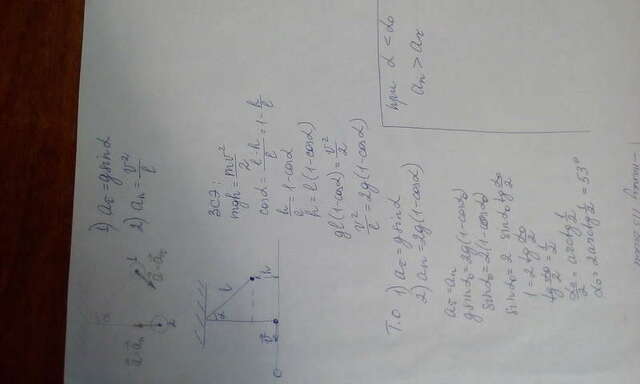 1) a_τ = g sin α
2) a_n = v²/l
ЗСЭ:
mgh = mv²/2
cos α = (l-h)/l = 1 - h/l
h/l = 1 - cos α
h = l(1-cos α)
gl(1-cos α) = v²/2
v²/l = 2g(1-cos α)
Т.О 1) a_τ = g sin α
2) a_n = 2g(1-cos α)
a_τ = a_n
g sin α₀ = 2g(1-cos α₀)
sin α₀ = 2(1-cos α₀)
sin α₀ = 2 sin α₀ tg α₀/2
1 = 2 tg α₀/2
tg α₀/2 = 1/2
α₀/2 = arctg 1/2
α₀ = 2 arctg 1/2 = 53°
при α < α₀
a_n > a_τ